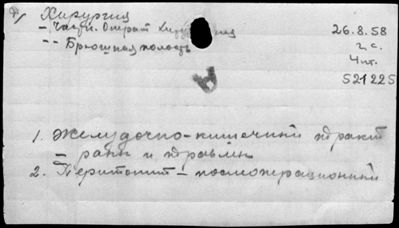 Хирургия
– Частн. Операт
26.8.58
-- Брюшная полость
ч.с.
4 м.
521225
1. Желудочно-кишечный тракт
– раны и травмы
2. Перитонит – послеоперационный